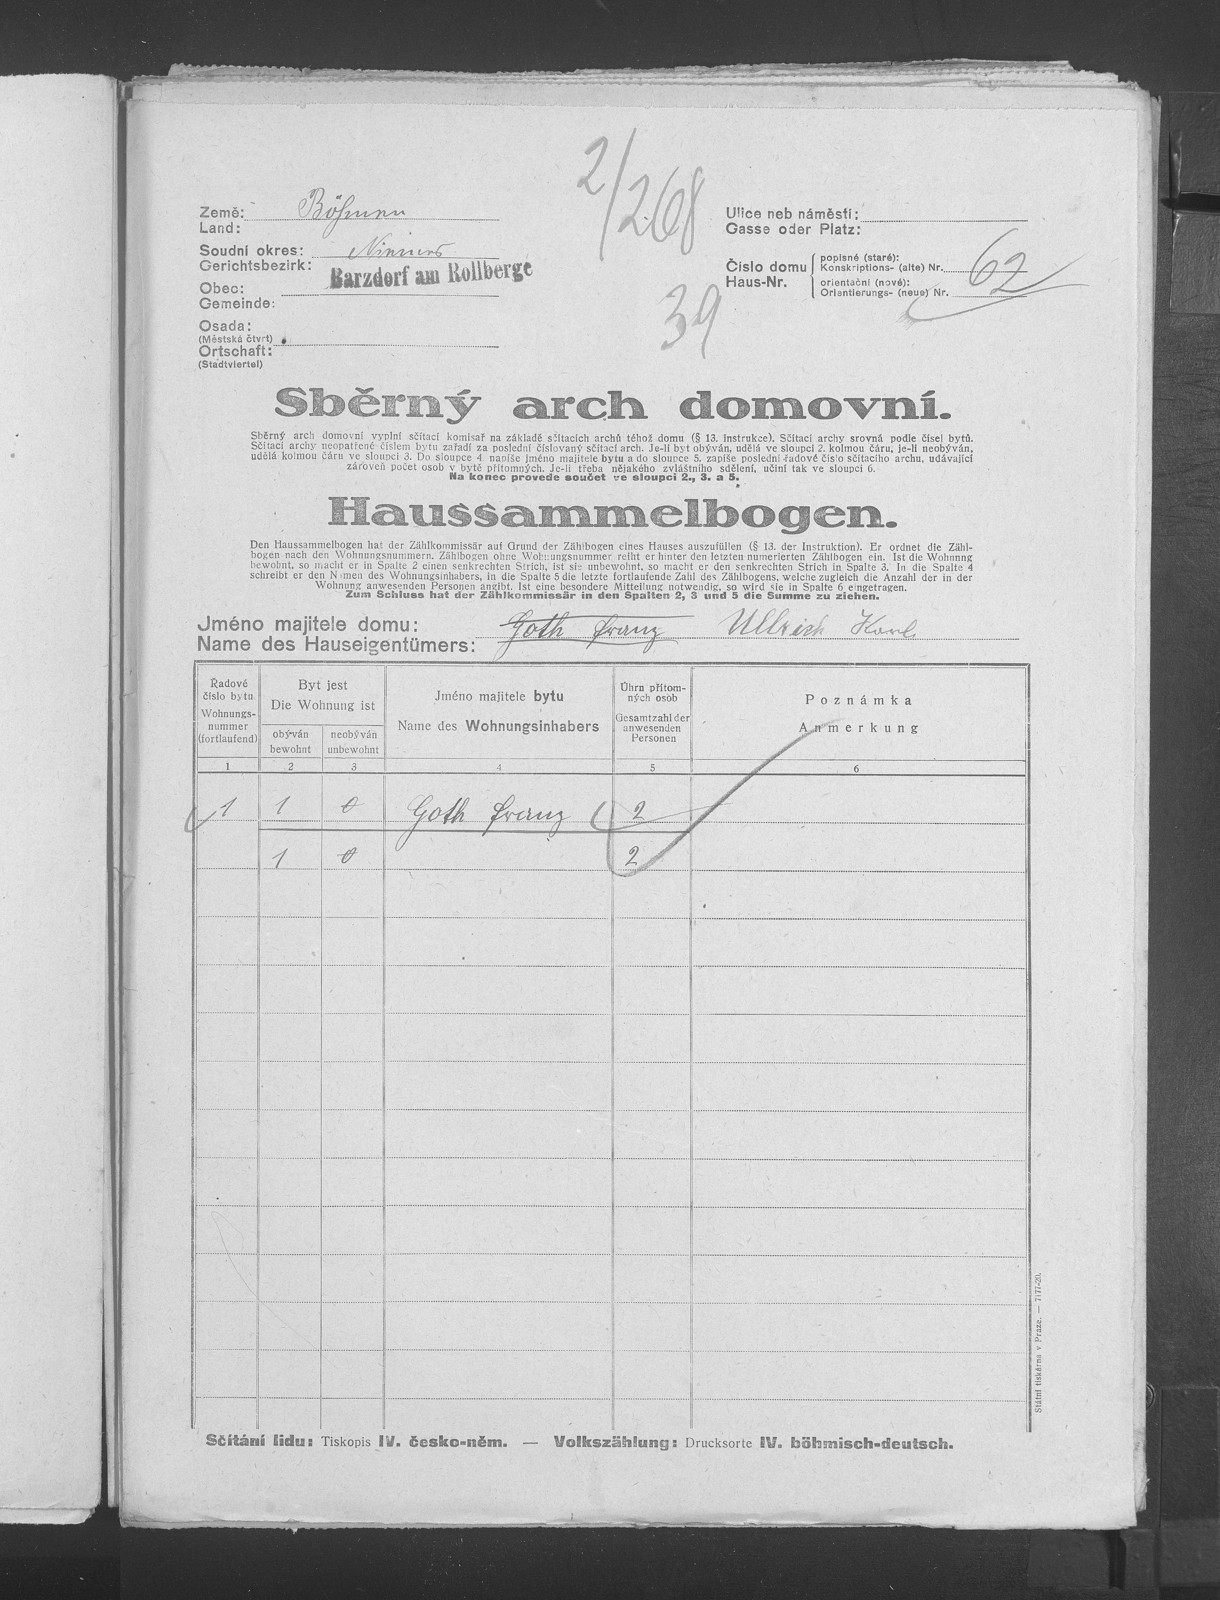 2/268
39
Země: Böhmen
Land:
Soudní okres: Niemes
Gerichtsbezirk:
Obec: Barzdorf am Rollberge
Gemeinde:
Osada:
(Městská čtvrt)
Ortschaft:
(Stadtviertel)
Ulice neb náměstí:
Gasse oder Platz:
Číslo domu
Haus-Nr.
popisné (staré):
Konskriptions- (alte) Nr.
orientační (nové):
Orientierungs- (neue) Nr.
62
Sběrný arch domovní.
Sběrný arch domovní vyplní sčítací komisař na základě sčítacích archů téhož domu (§ 13. instrukce). Sčítací archy srovná podle čísel bytů.
Sčítací archy neopatřené číslem bytu zařadí za poslední číslovaný sčítací arch. Je-li byt obýván, udělá ve sloupci 2. kolmou čáru, je-li neobýván,
udělá kolmou čáru ve sloupci 3. Do sloupce 4. napíše jméno majitele bytu a do sloupce 5. zapíše poslední řadové číslo sčítacího archu, udávající
zároveň počet osob v bytě přítomných. Je-li třeba nějakého zvláštního sdělení, učiní tak ve sloupci 6.
Na konec provede součet ve sloupci 2., 3. a 5.
Haussammelbogen.
Den Haussammelbogen hat der Zählkommissär auf Grund der Zählbogen eines Hauses auszufüllen (§ 13. der Instruktion). Er ordnet die Zähl-
bogen nach den Wohnungsnummern. Zählbogen ohne Wohnungsnummer reiht er hinter den letzten numerierten Zählbogen ein. Ist die Wohnung
bewohnt, so macht er in Spalte 2 einen senkrechten Strich, ist sie unbewohnt, so macht er den senkrechten Strich in Spalte 3. In die Spalte 4
schreibt er den Namen des Wohnungsinhabers, in die Spalte 5 die letzte fortlaufende Zahl des Zählbogens, welche zugleich die Anzahl der in der
Wohnung anwesenden Personen angibt. Ist eine besondere Mitteilung notwendig, so wird sie in Spalte 6 eingetragen.
Zum Schluss hat der Zählkommissär in den Spalten 2, 3 und 5 die Summe zu ziehen.
Jméno majitele domu: Goth Franz Ullrich Karl
Name des Hauseigentümers:
Řadové
číslo bytu
Wohnungs-
nummer
(fortlaufend)
Byt jest
Die Wohnung ist
obýván
bewohnt
neobýván
unbewohnt
Jméno majitele bytu
Name des Wohnungsinhabers
Úhrn přítom-
ných osob
Gesamtzahl der
anwesenden
Personen
Poznámka
Anmerkung
1 2 3 4 5 6
1 1 0 Goth Franz 2
1 0 2
Státní tiskárna v Praze. — 7177-20.
Sčítání lidu: Tiskopis IV. česko-něm. — Volkszählung: Drucksorte IV. böhmisch-deutsch.